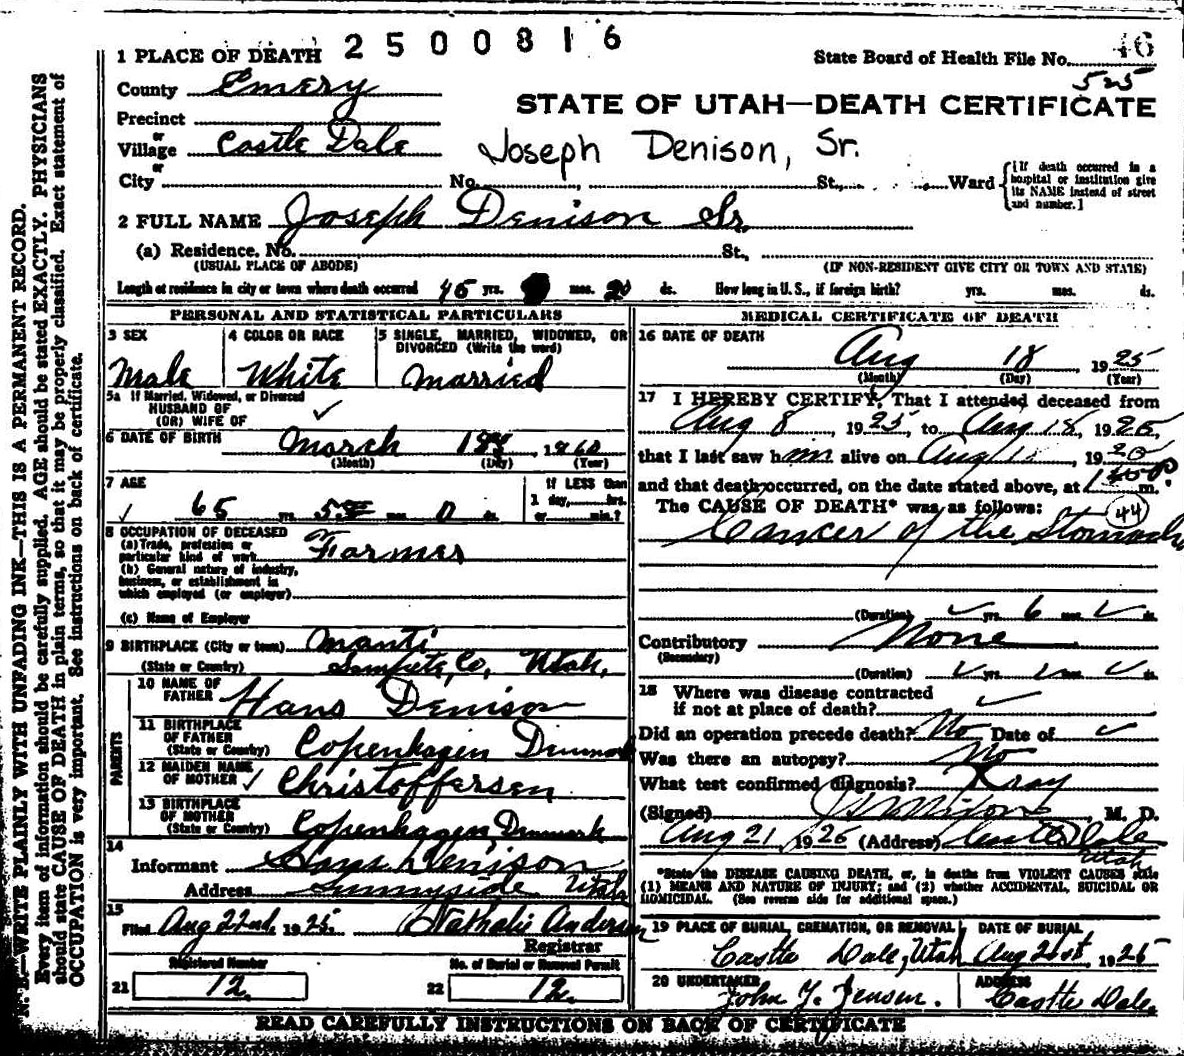 1 PLACE OF DEATH 2500816
State Board of Health File No. 46
525
County Emery
STATE OF UTAH—DEATH CERTIFICATE
Precinct
or
Village Castle Dale
Joseph Denison, Sr.
or
City No. St., Ward
[If death occurred in a hospital or institution give its NAME instead of street and number.]
2 FULL NAME Joseph Denison Sr.
(a) Residence. No. St.,
(USUAL PLACE OF ABODE) (IF NON-RESIDENT GIVE CITY OR TOWN AND STATE)
Length of residence in city or town where death occurred 45 yrs. mos. ds. How long in U. S., if foreign birth? yrs. mos. ds.
PERSONAL AND STATISTICAL PARTICULARS
3 SEX 4 COLOR OR RACE 5 SINGLE, MARRIED, WIDOWED, OR
DIVORCED (Write the word)
Male White Married
5a If Married, Widowed, or Divorced
HUSBAND OF
(OR) WIFE OF
6 DATE OF BIRTH March , 1860
(Month) (Day) (Year)
7 AGE If LESS than
65 yrs. 5 mos. 0 ds. 1 day, hrs.
or min.?
8 OCCUPATION OF DECEASED
(a) Trade, profession or
particular kind of work Farmer
(b) General nature of industry,
business, or establishment in
which employed (or employer)
(c) Name of Employer
9 BIRTHPLACE (City or town) Manti
(State or Country) Sanpete, Co, Utah,
PARENTS
10 NAME OF
FATHER Hans Denison
11 BIRTHPLACE
OF FATHER
(State or Country) Copenhagen Denmark
12 MAIDEN NAME
OF MOTHER Christoffersen
13 BIRTHPLACE
OF MOTHER
(State or Country) Copenhagen Denmark
14
Informant Denison
Address Sunnyside Utah
15
Filed Aug 22nd, 1925. Nathalie Anderson
Registrar
Registered Number No. of Burial or Removal Permit
21 12. 22 12.
MEDICAL CERTIFICATE OF DEATH
16 DATE OF DEATH
Aug 18 , 1925
(Month) (Day) (Year)
17 I HEREBY CERTIFY, That I attended deceased from
Aug 8 , 1925, to Aug 18, 1925,
that I last saw him alive on Aug , 19
and that death occurred, on the date stated above, at m.
The CAUSE OF DEATH* was as follows: 44
Cancer of the Stomach
(Duration) yrs. 6 mos. ds.
Contributory None
(Secondary)
(Duration) yrs. mos. ds.
18 Where was disease contracted
if not at place of death?
Did an operation precede death? No Date of
Was there an autopsy? No
What test confirmed diagnosis? Xray
(Signed) , M. D.
Aug 21, 1925 (Address) Castle Dale
Utah
*State the DISEASE CAUSING DEATH, or, in deaths from VIOLENT CAUSES state
(1) MEANS AND NATURE OF INJURY; and (2) whether ACCIDENTAL, SUICIDAL OR
HOMICIDAL. (See reverse side for additional space.)
19 PLACE OF BURIAL, CREMATION, OR REMOVAL DATE OF BURIAL
Castle Dale, Utah Aug 21st, 1925
20 UNDERTAKER ADDRESS
John Y. Jensen. Castle Dale.
READ CAREFULLY INSTRUCTIONS ON BACK OF CERTIFICATE
N. B.—WRITE PLAINLY WITH UNFADING INK—THIS IS A PERMANENT RECORD.
Every item of information should be carefully supplied. AGE should be stated EXACTLY. PHYSICIANS
should state CAUSE OF DEATH in plain terms, so that it may be properly classified. Exact statement of
OCCUPATION is very important. See instructions on back of certificate.